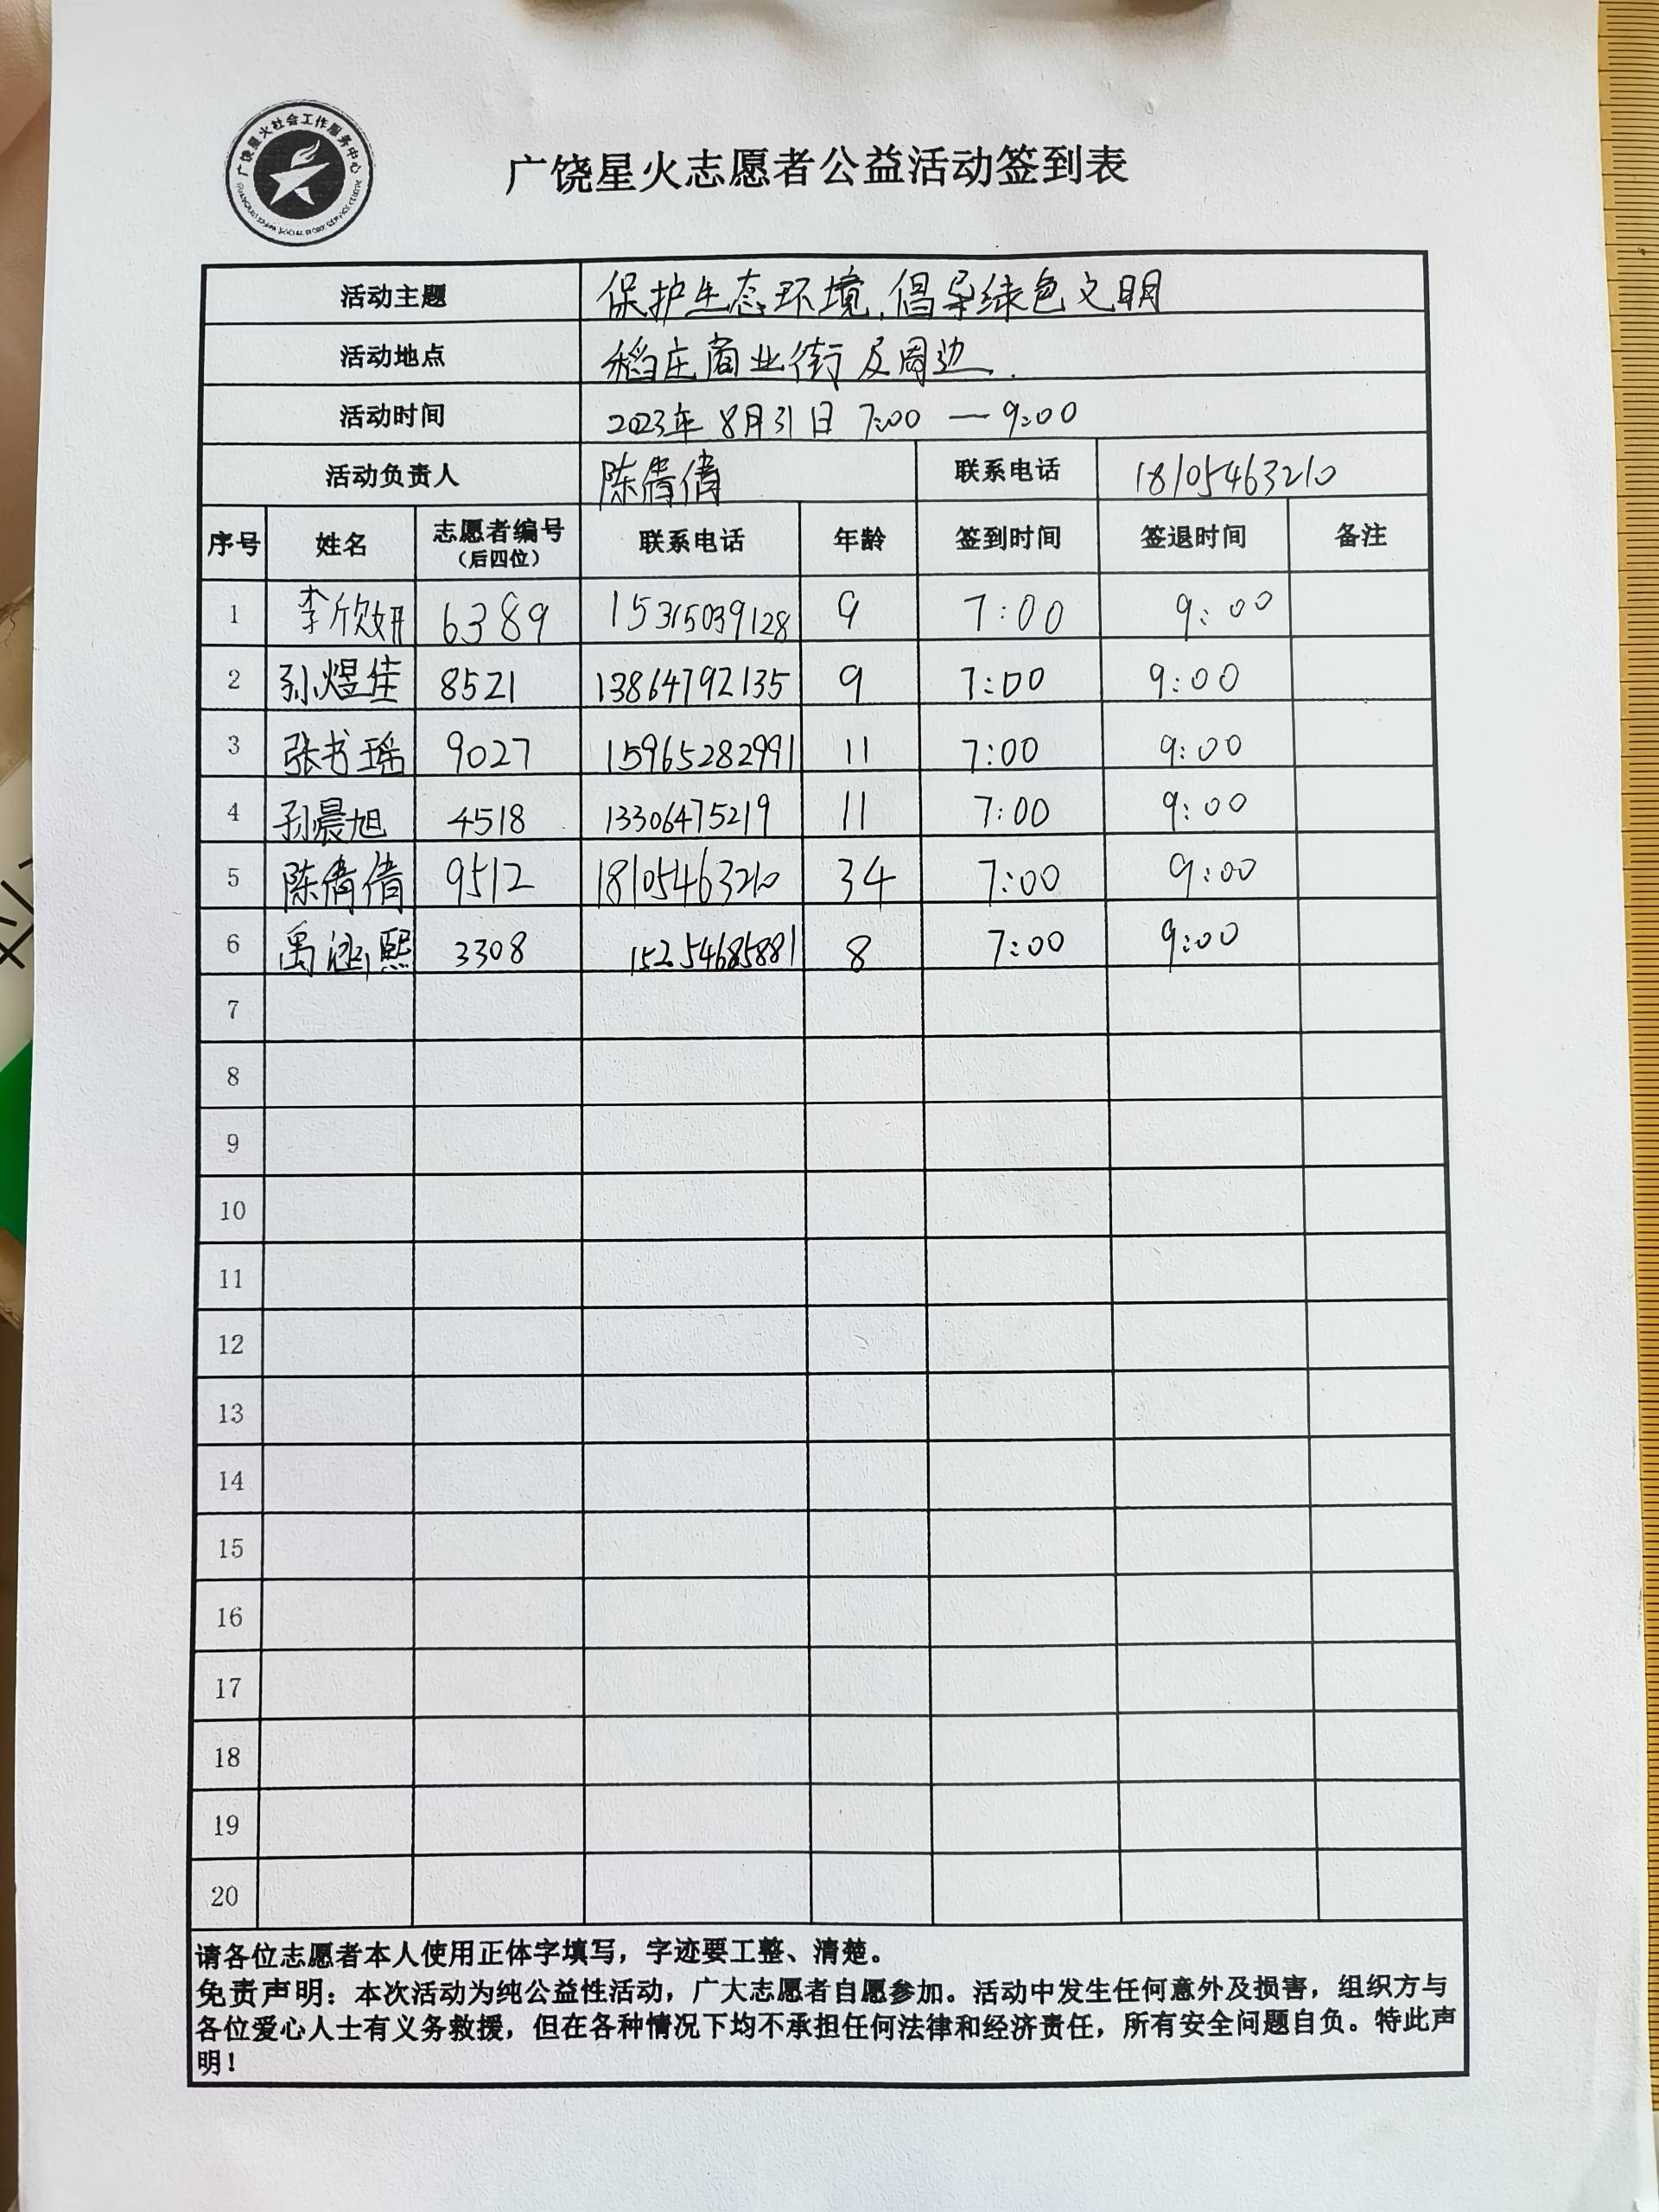 广饶星火社会工作服务中心
广饶星火志愿者公益活动签到表
活动主题 保护生态环境,倡导绿色文明
活动地点 稻庄商业街及周边.
活动时间 2023年8月31日 7:00 — 9:00
活动负责人 陈倩倩 联系电话 18105463210
序号 姓名 志愿者编号（后四位） 联系电话 年龄 签到时间 签退时间 备注
1 李欣妍 6389 15315039128 9 7:00 9:00
2 孙煜佳 8521 13864792135 9 7:00 9:00
3 张书瑶 9027 15965282991 11 7:00 9:00
4 孙晨旭 4518 13306475219 11 7:00 9:00
5 陈倩倩 9512 18105463210 34 7:00 9:00
6 禹涵熙 3308 15254685881 8 7:00 9:00
7
8
9
10
11
12
13
14
15
16
17
18
19
20
请各位志愿者本人使用正体字填写，字迹要工整、清楚。
免责声明：本次活动为纯公益性活动，广大志愿者自愿参加。活动中发生任何意外及损害，组织方与
各位爱心人士有义务救援，但在各种情况下均不承担任何法律和经济责任，所有安全问题自负。特此声
明！